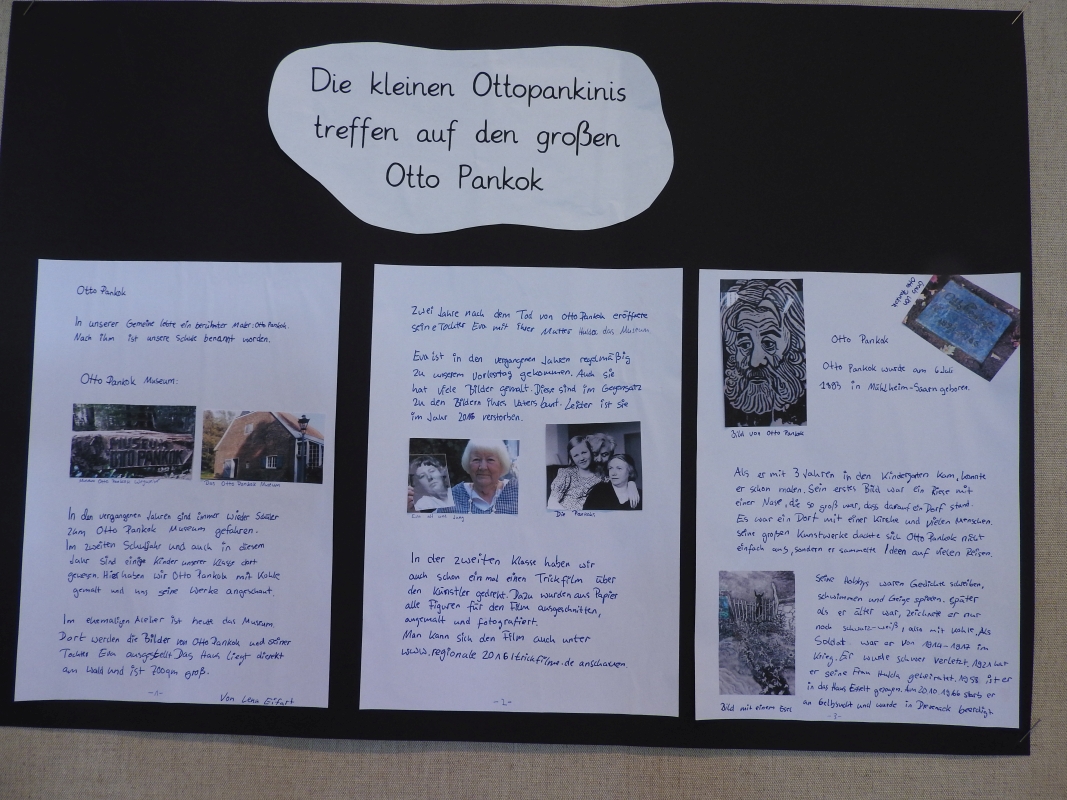 Die kleinen Ottopankinis
treffen auf den großen
Otto Pankok
Otto Pankok
In unserer Gemeine lebte ein berühmter Maler: Otto Pankok.
Nach ihm ist unsere Schule benannt worden.
Otto Pankok Museum:
MUSEUM
OTTO PANKOK
Museum Otto Pankok Wegweiser
Das Otto Pankok Museum
In den vergangenen Jahren sind immer wieder Schüler
zum Otto Pankok Museum gefahren.
Im zweiten Schuljahr und auch in diesem
Jahr sind einige Kinder unserer Klasse dort
gewesen. Hier haben wir Otto Pankok mit Kohle
gemalt und uns seine Werke angeschaut.
Im ehemaligen Atelier ist heute das Museum.
Dort werden die Bilder von Otto Pankok und seiner
Tochter Eva ausgestellt. Das Haus liegt direkt
am Wald und ist 700qm groß.
-1-
Von Lena
Zwei Jahre nach dem Tod von Otto Pankok eröffnete
seine Tochter Eva mit ihrer Mutter Hulda das Museum
Eva ist in den vergangenen Jahren regelmäßig
zu unserem Vorlesetag gekommen. Auch sie
hat viele Bilder gemalt. Diese sind im Gegensatz
zu den Bildern ihres Vaters bunt. Leider ist sie
im Jahr 2016 verstorben.
Eva alt und jung
Die Pankoks
In der zweiten Klasse haben wir
auch schon einmal einen Trickfilm über
den Künstler gedreht. Dazu wurden aus Papier
alle Figuren für den Film ausgeschnitten,
angemalt und fotografiert.
Man kann sich den Film auch unter
www.regionale2016trickfilme.de anschauen.
-2-
Bild von Otto Pankok
Otto Pankok
Otto Pankok wurde am 6.Juli
1893 in Mühlheim-Saarn geboren.
Als er mit 3 Jahren in den Kindergarten kam, konnte
er schon malen. Sein erstes Bild war ein Riese mit
einer Nase, die so groß war, dass darauf ein Dorf stand.
Es war ein Dorf mit einer Kirche und vielen Menschen.
seine großen Kunstwerke dachte sich Otto Pankok nicht
einfach aus, sondern er sammelte Ideen auf vielen Reisen.
Seine Hobbys waren Gedichte schreiben,
schwimmen und Geige spielen. Später
als er älter war, zeichnete er nur
noch schwarz-weiß, also mit Kohle. Als
Soldat war er von 1914-1917 im
Krieg. Er wurde schwer verletzt. 1921 hat
er seine Frau Hulda geheiratet. 1958 ist er
in das Haus Esselt gezogen. Am 20.10.1966 starb er
an Gelbsucht und wurde in Drevenack beerdigt.
Bild mit einem Esel
-3-